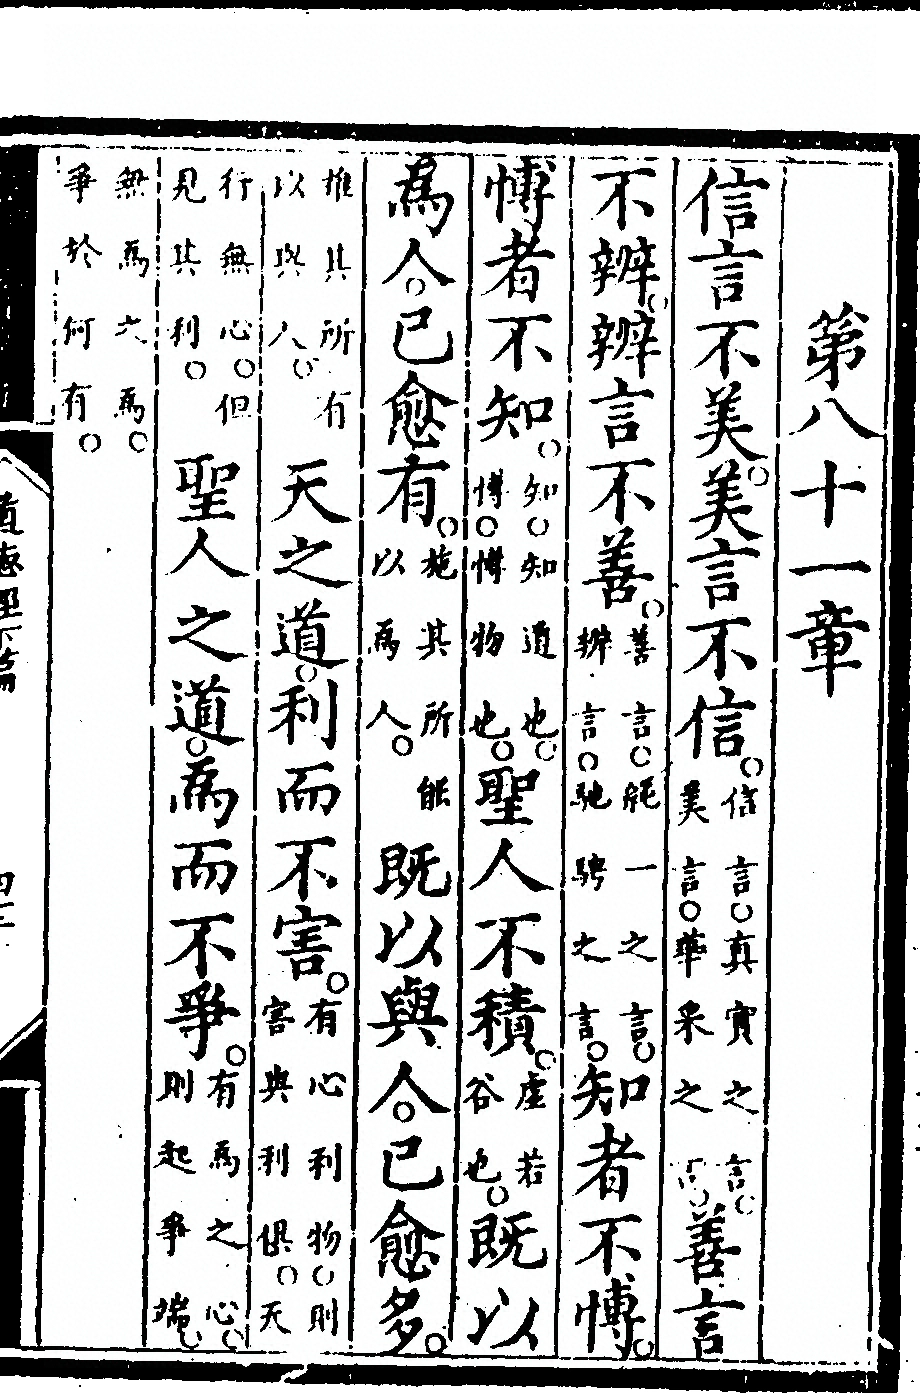 第八十一章
信言不美。美言不信。信言。真實之言。美言。華采之言。善言
不辨。辨言不善。善言。一之言。辨言。馳騁之言。知者不愽。
愽者不知。知。知道也。愽。愽物也。聖人不積。虛若谷也。既以
為人。已愈有。施其所能以為人。既以與人。已愈多。
推其所有以與人。天之道。利而不害。有心利物。則害與利俱。天
行無心。但見其利。聖人之道。為而不爭。有為之心。則起爭端。
無為之為。爭於何有。
道德經下篇